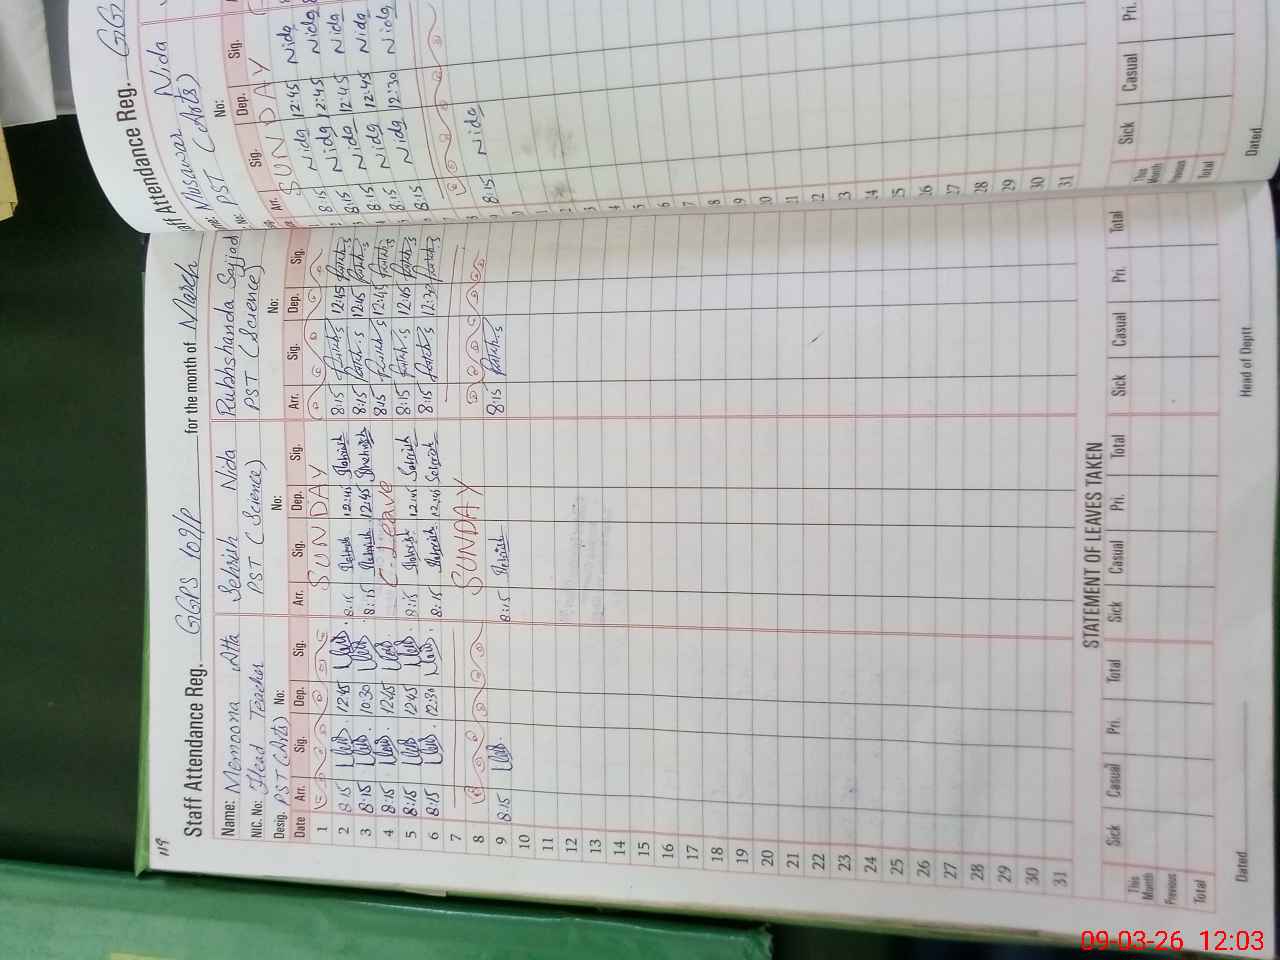 119
Staff Attendance Reg. GGPS 109/P for the month of March
Name: Memoona Atta Sehrish Nida Rukhshanda Sajjad
NIC. No: Head Teacher PST (Science) PST (Science)
Desig. PST (Arts) No: No: No:
Date Arr. Sig. Dep. Sig. Arr. Sig. Dep. Sig. Arr. Sig. Dep. Sig.
1 SUNDAY
2 8:15 12:45 8:15 12:45 8:15 12:45
3 8:15 10:30 8:15 12:45 8:15 12:45
4 8:15 12:45 C-Leave 8:15 12:45
5 8:15 12:45 8:15 12:45 8:15 12:45
6 8:15 12:30 8:15 12:45 8:15 12:30
7
8 SUNDAY
9 8:15 8:15 8:15
10
11
12
13
14
15
16
17
18
19
20
21
22
23
24
25
26
27
28
29
30
31
STATEMENT OF LEAVES TAKEN
Sick Casual Pri. Total Sick Casual Pri. Total Sick Casual Pri. Total
This Month
Previous
Total
Dated Head of Deptt
Attendance Reg. GG
Musawar Nida
PST (Arts)
No:
Arr. Sig. Dep. Sig.
SUNDAY
8:15 Nida 12:45 Nida
8:15 Nida 12:45 Nida
8:15 Nida 12:45 Nida
8:15 Nida 12:45 Nida
8:15 Nida 12:30 Nida
8:15 Nida
18
19
20
21
22
23
24
25
26
27
28
29
30
31
Sick Casual Pri.
This Month
Previous
Total
Dated
09-03-26 12:03